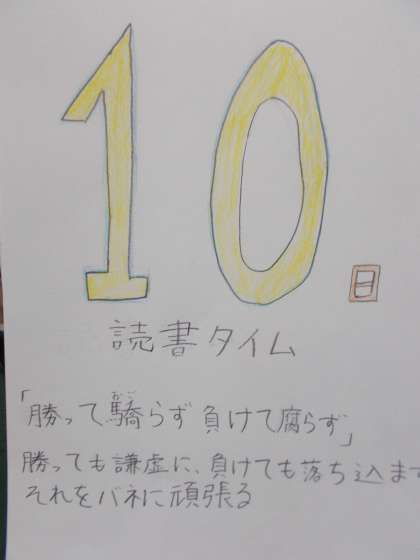 10
日
読書タイム
「勝って驕らず 負けて腐らず」
おご
勝っても謙虚に、負けても落ち込まず
それをバネに頑張る